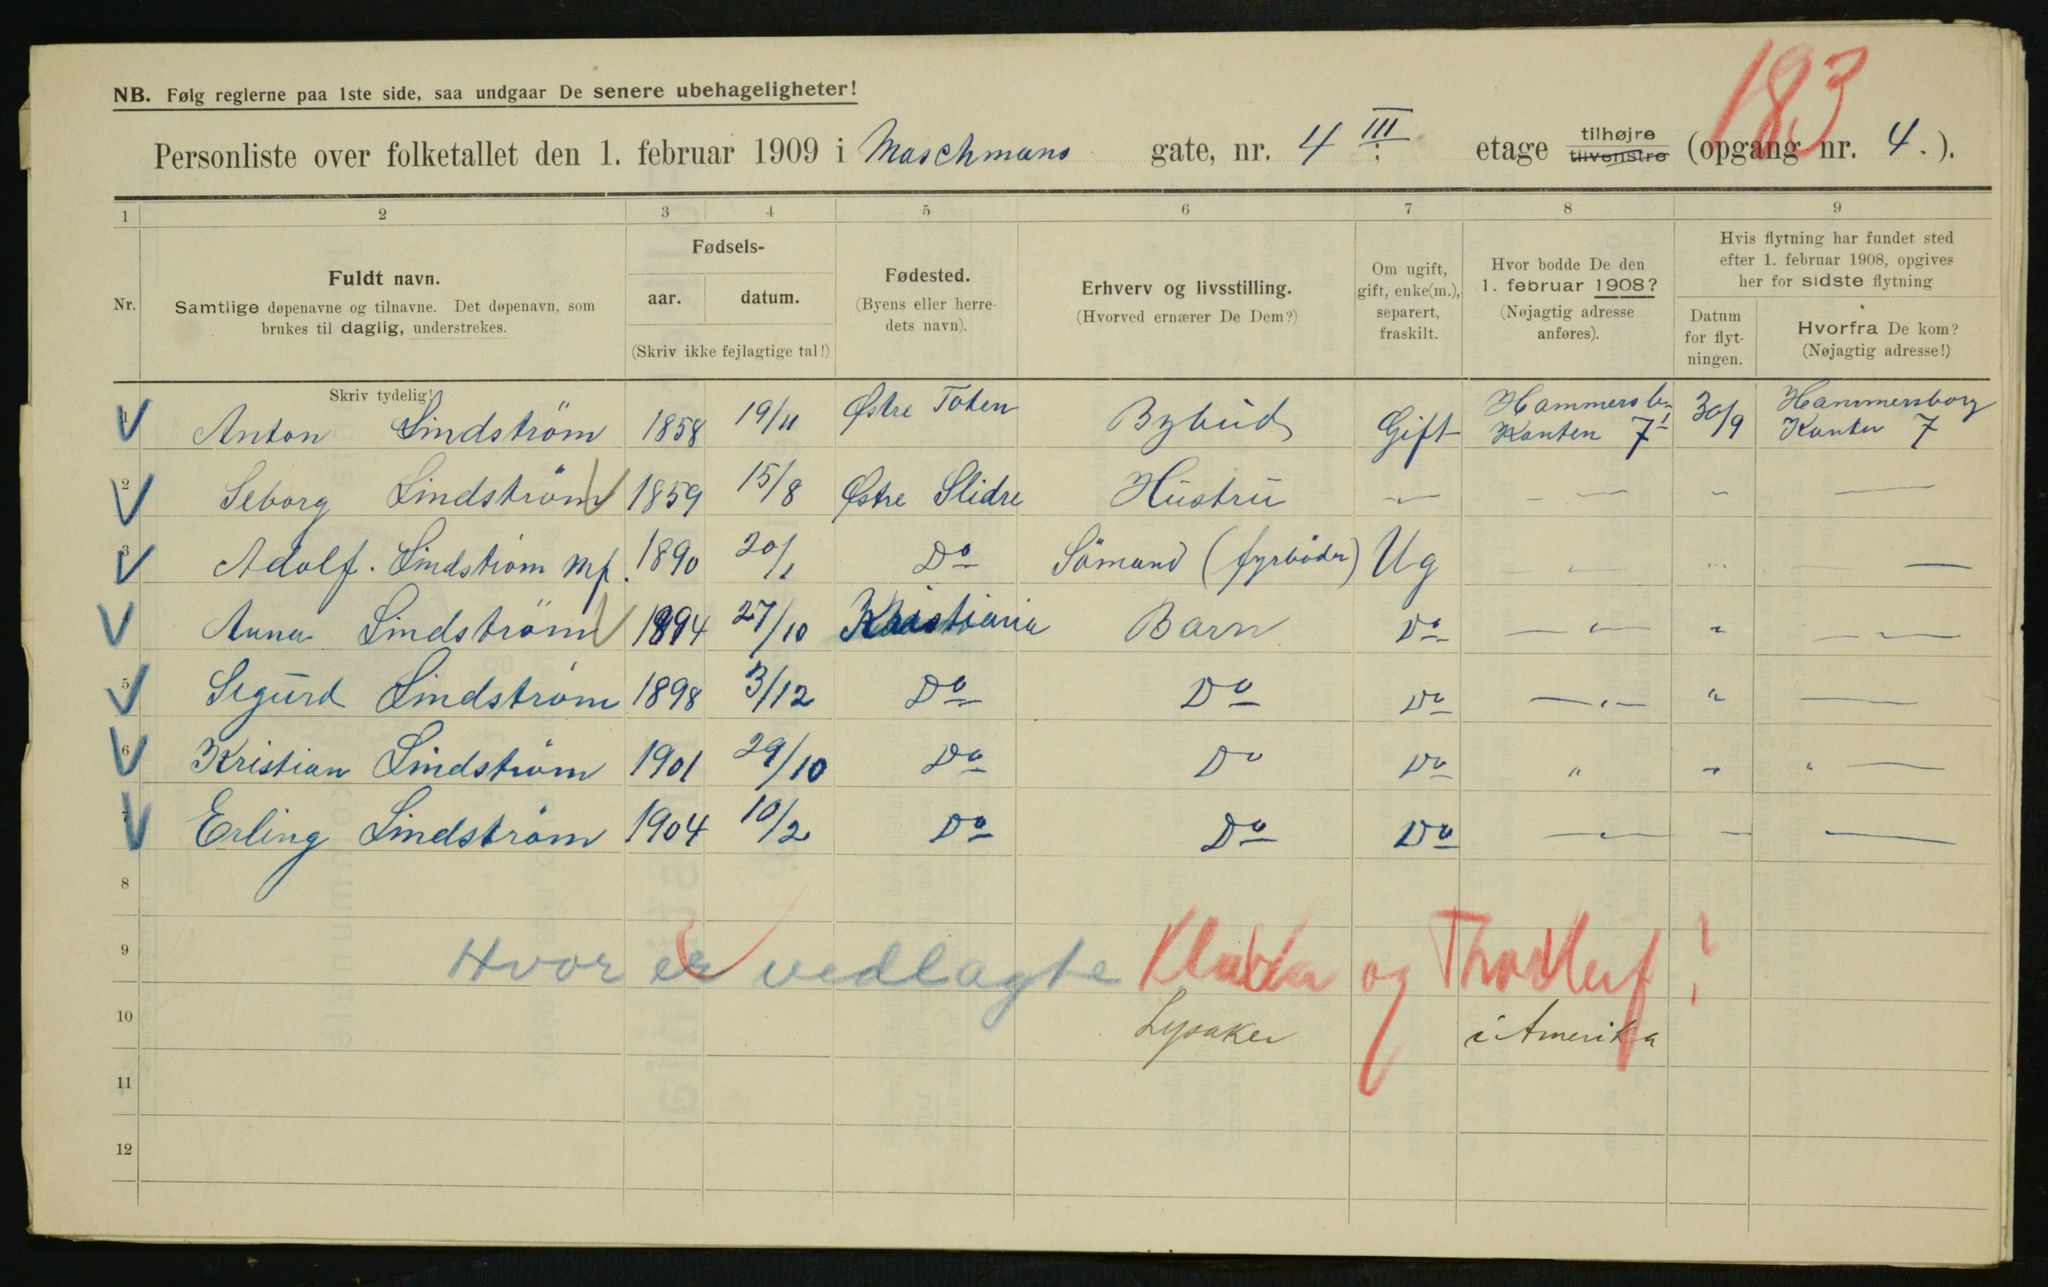 183
NB. Følg reglerne paa 1ste side, saa undgaar De senere ubehageligheter!
Personliste over folketallet den 1. februar 1909 i Maschmans gate, nr. 4 III etage tilhøjre tilvenstre (opgang nr. 4.).
1 2 3 4 5 6 7 8 9
Nr.
Fuldt navn.
Samtlige døpenavne og tilnavne. Det døpenavn, som
brukes til daglig, understrekes.
Skriv tydelig!
Fødsels-
aar. datum.
(Skriv ikke fejlagtige tal!)
Fødested.
(Byens eller herre-
dets navn).
Erhverv og livsstilling.
(Hvorved ernærer De Dem?)
Om ugift,
gift, enke(m.),
separert,
fraskilt.
Hvor bodde De den
1. februar 1908?
(Nøjagtig adresse
anføres).
Hvis flytning har fundet sted
efter 1. februar 1908, opgives
her for sidste flytning
Datum
for flyt-
ningen.
Hvorfra De kom?
(Nøjagtig adresse!)
1 Anton Lindström 1858 19/11 Østre Toten Bybud Gift Hammersb. Kanten 7 30/9 Hammersborg Kanten 7
2 Seborg Lindström 1859 15/8 Østre Slidre Hustru — " — — " — " —
3 Adolf. Lindström Mf. 1890 20/1 Do Sömand (fyrböder) Ug — " — " — —
4 Anna Lindström 1894 27/10 Kristiania Barn Do — " — " — —
5 Sigurd Lindström 1898 3/12 Do Do Do — " — " —
6 Kristian Lindström 1901 29/10 Do Do Do " " " —
7 Erling Lindström 1904 10/2 Do Do Do — " — — —
8
9 Hvor er vedlagte Klara og Thorleif?
10 Lysaker i Amerika
11
12